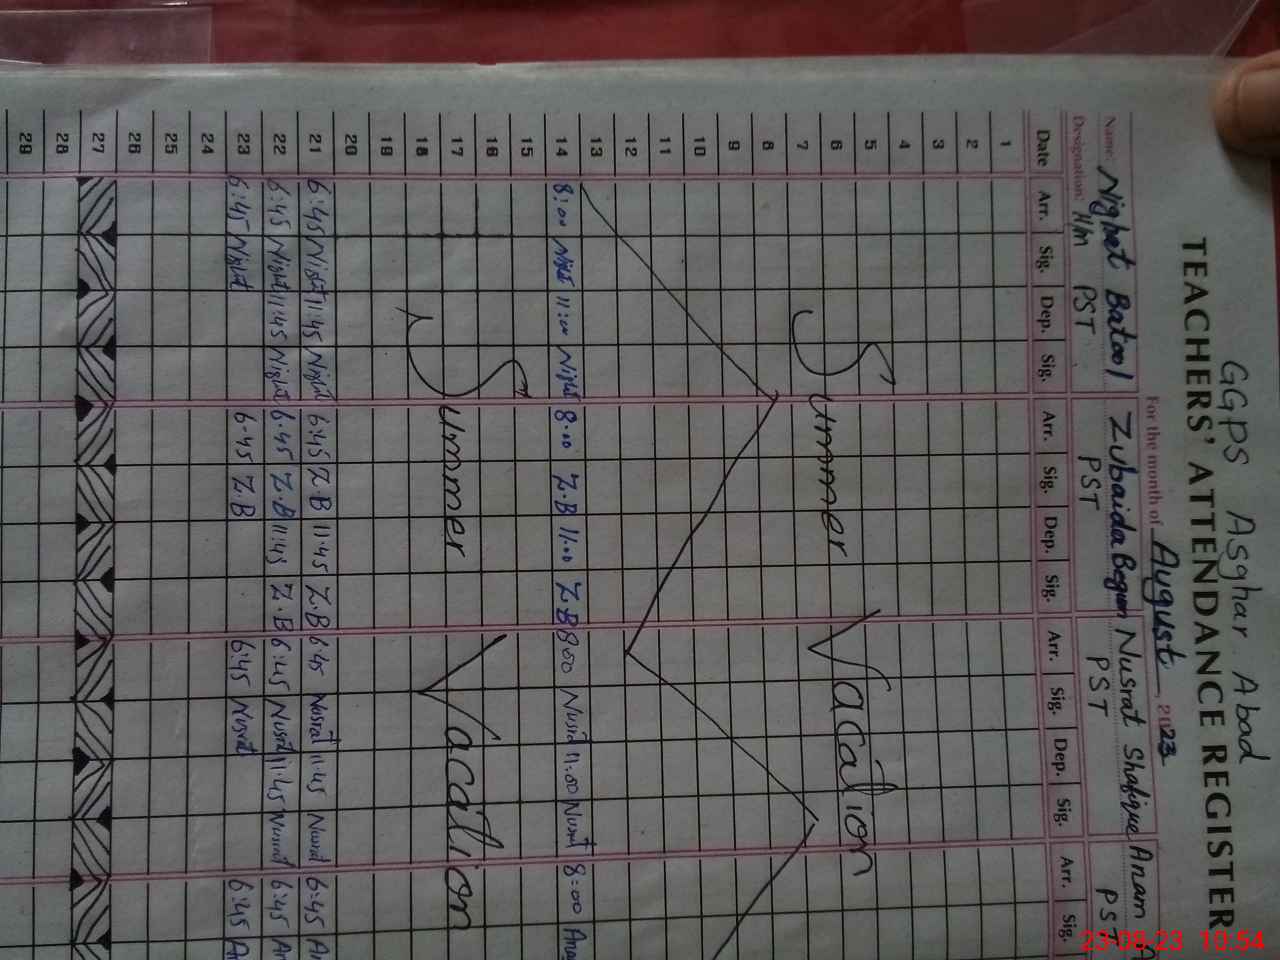 GGPS Asghar Abad
TEACHERS' ATTENDANCE REGISTER
For the month of August 2023
Name: Nighet Batool Zubaida Begum Nusrat Shafique Anam
Designation: H/m PST PST PST PST
Date Arr. Sig. Dep. Sig. Arr. Sig. Dep. Sig. Arr. Sig. Dep. Sig. Arr. Sig.
1
2
3
4
5
6 Summer Vacation
7
8
9
10
11
12
13
14 8:00 Night 11:00 Night 8:00 Z.B 11:00 Z.B 8:00 Nusrat 11:00 Nusrat 8:00 Anam
15
16
17 Summer Vacation
18
19
20
21 6:45 Night 11:45 Night 6:45 Z.B 11:45 Z.B 6:45 Nusrat 11:45 Nusrat 6:45 An
22 6:45 Night 11:45 Night 6:45 Z.B 11:45 Z.B 6:45 Nusrat 11:45 Nusrat 6:45 An
23 6:45 Night 6:45 Z.B 6:45 Nusrat 6:45 An
24
25
26
27
28
29
23-08-23 10:54